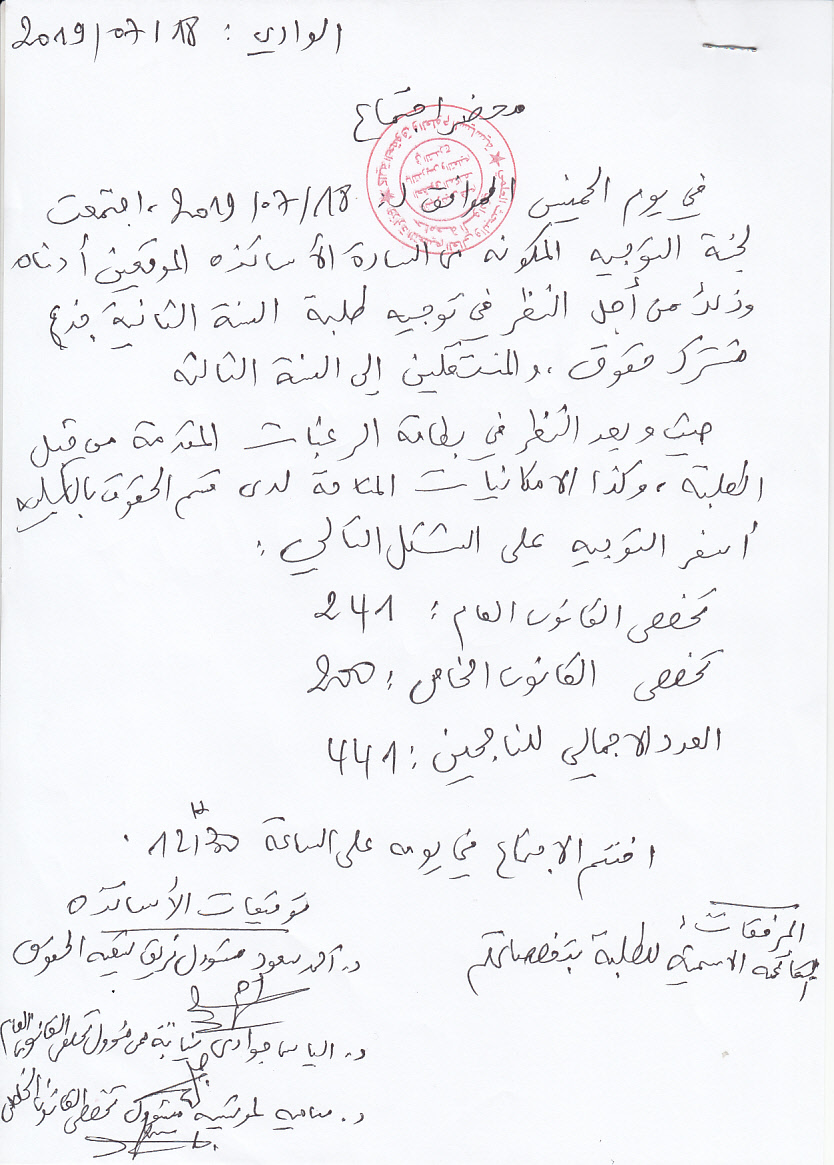 الوادي : 2019/07/18
محضر اجتماع
في يوم الخميس الموافق لـ: 2019/07/18 ، اجتمعت
لجنة التوجيه المكونة من السادة الأساتذة الموقعين أدناه
وذلك من أجل النظر في توجيه طلبة السنة الثانية جذع
مشترك حقوق ، والمنتقلين إلى السنة الثالثة
حيث وبعد النظر في بطاقة الرغبات المقدمة من قبل
الطلبة ، وكذا الامكانيات المتاحة لدى قسم الحقوق بالكلية
أسفر التوجيه على الشكل التالي :
تخصص القانون العام : 241
تخصص القانون الخاص : 200
العدد الاجمالي للناجحين : 441
اختتم الاجتماع في يومه على الساعة 12:30 .
توقيعات الأساتذة
المرفقات :
القائمة الاسمية للطلبة بتخصصاتهم
د. أحمد سعود مسؤول فريق شعبة الحقوق
د. الياس جوادي نيابة عن مسؤول تخصص القانون العام
د. سامية مسؤول تخصص القانون الخاص